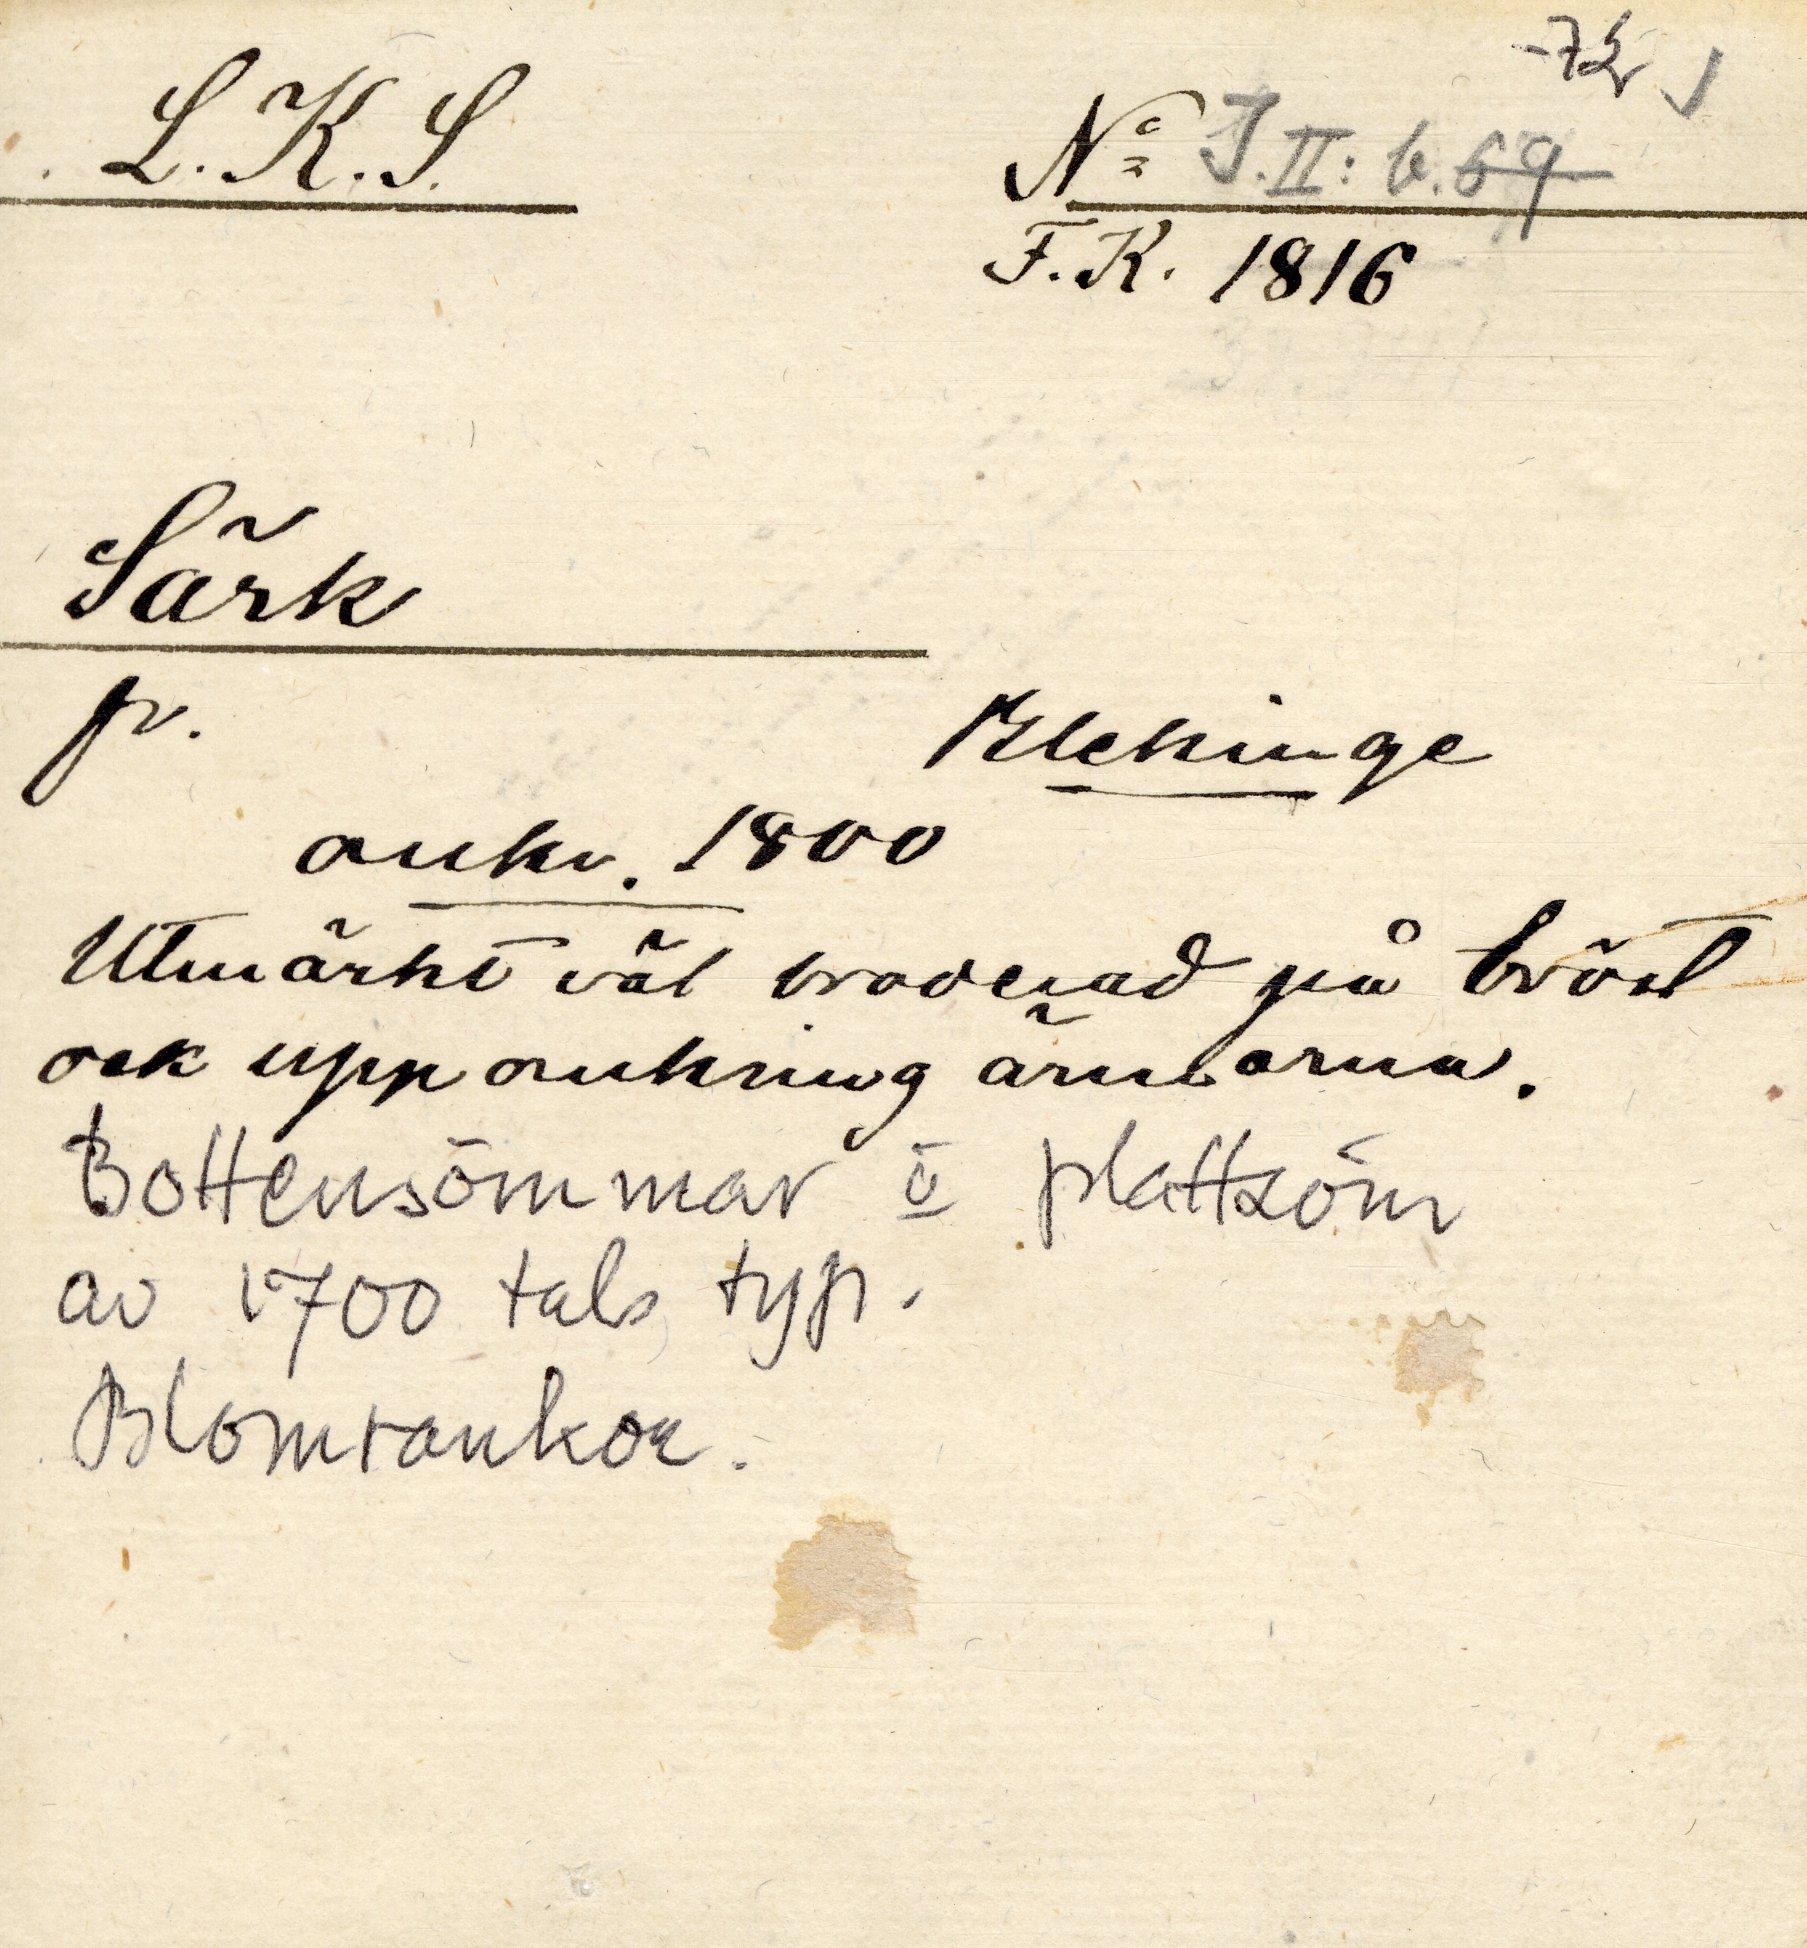 L.K.S.
No I.II: b. 69
F.K. 1816
Särk
fr. Blekinge
omkr. 1800
Utmärkt väl broderad på bröst
ock upp omkring ärmarna.
Bottensömmar i plattsöm
av 1700 tals typ.
Blomrankor.